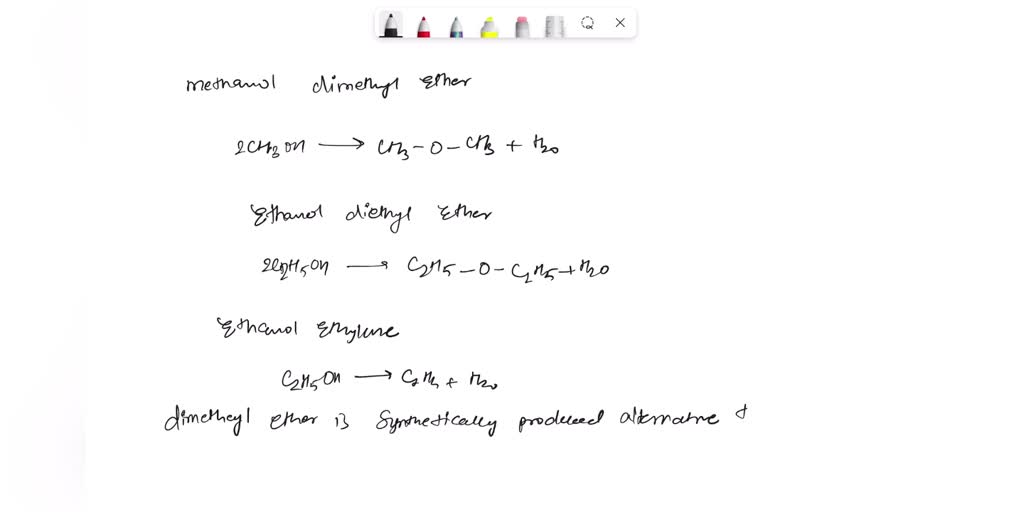 methanol dimethyl Ether
2CH3OH → CH3-O-CH3 + H2O
Ethanol diethyl Ether
2C2H5OH → C2H5-O-C2H5+H2O
Ethanol Ethylene
C2H5OH → C2H4 + H2O
dimetheyl ether is Synthetically produced alternative t